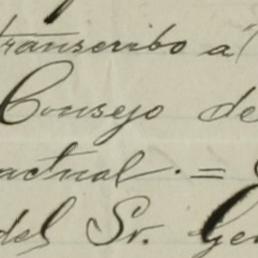 transcribo a
Consejo de
actual. =
del Sr. Gen